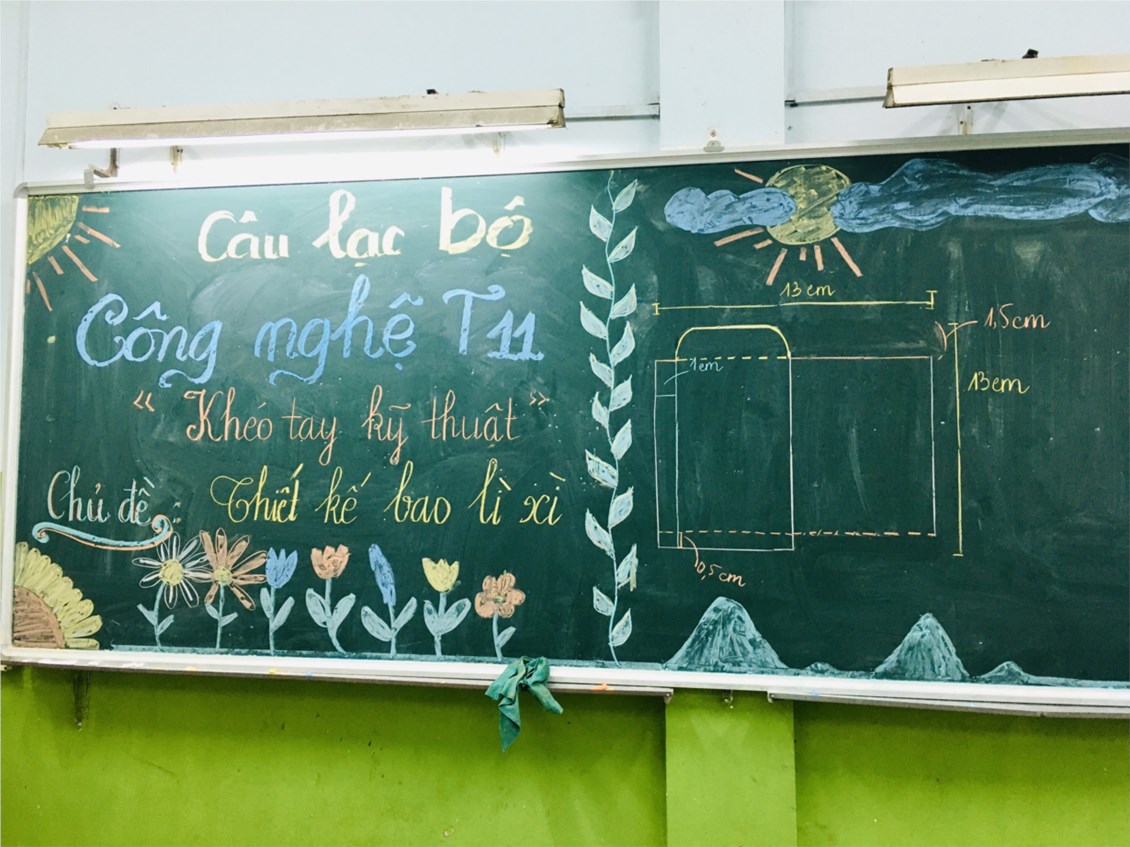 Câu lạc bộ
Công nghệ T11
“ Khéo tay kỹ thuật ”
Chủ đề : Thiết kế bao lì xì
13 cm
1,5cm
1cm
13cm
0,5cm